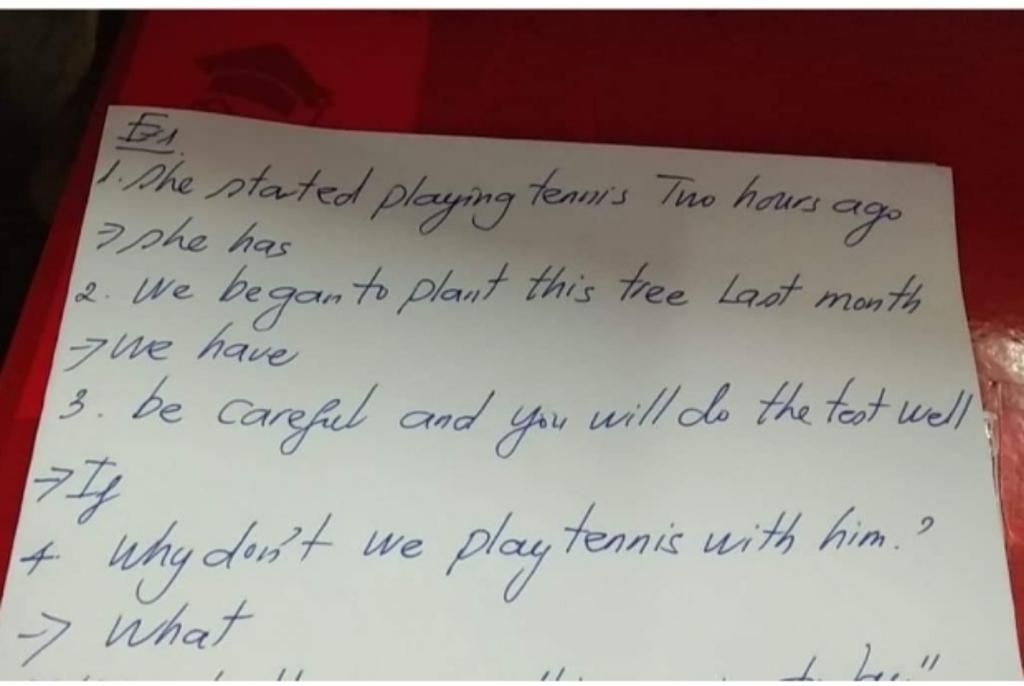 E1.
1. She started playing tennis Two hours ago
→ she has
2. We began to plant this tree Last month
→ we have
3. be careful and you will do the test well
→ If
4. why don't we play tennis with him.?
→ what